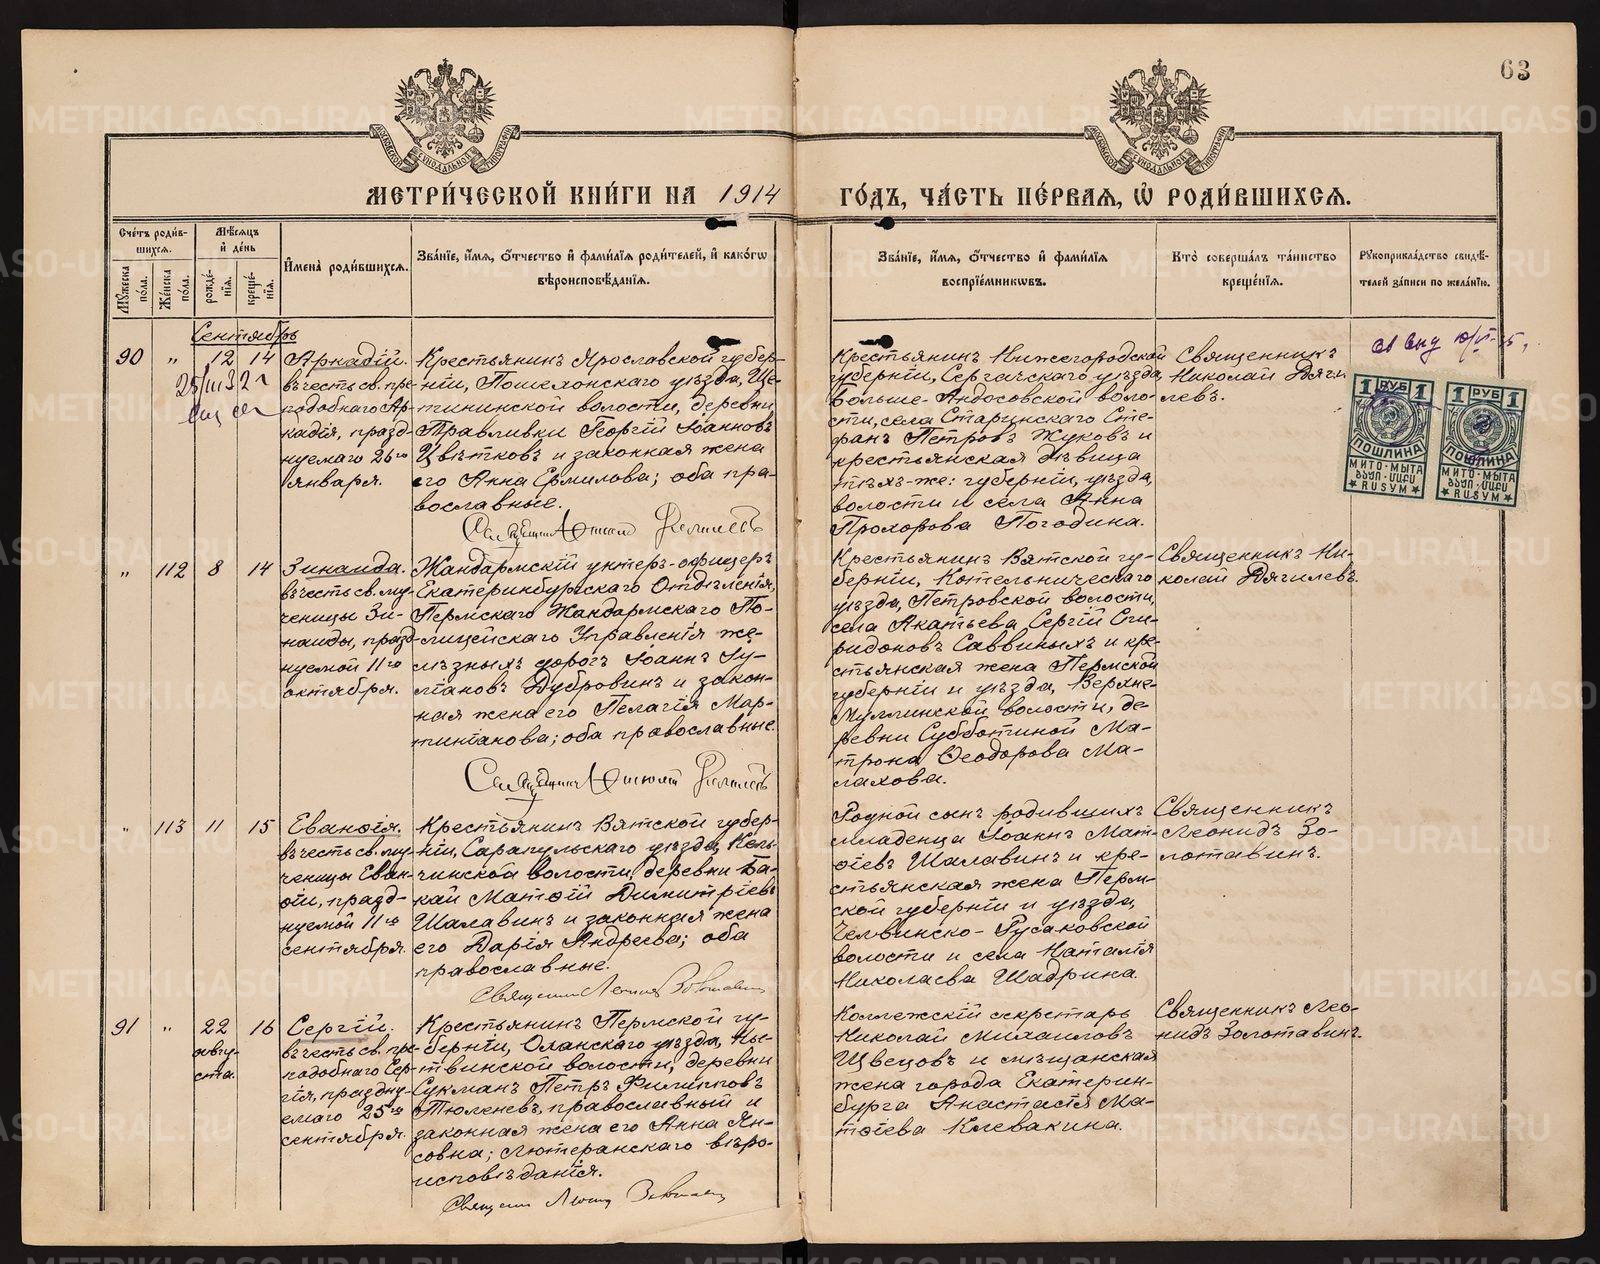 63
МОСКОВСКОЙ СѴНОДАЛЬНОЙ ТИПОГРАФІИ
МОСКОВСКОЙ СѴНОДАЛЬНОЙ ТИПОГРАФІИ
МЕТРИ́ЧЕСКОЙ КНИ́ГИ НА 1914 ГО́ДЪ, ЧА́СТЬ ПЕ́РВАЯ, Ѡ҆ РОДИ́ВШИХСЯ.
Сче́тъ роди́в-
шихся.
Мꙋ́жеска по́ла.
Же́нска по́ла.
Мѣ́сяцъ
и҆ де́нь
рожде́-
нїя.
креще́-
нїя.
И҆мена̀ роди́вшихся.
Зва́нїе, и҆́мя, ѻ҆́тчество и҆ фами́лїя роди́телей, и҆ како́гѡ
вѣроисповѣ́данїя.
Зва́нїе, и҆́мя, ѻ҆́тчество и҆ фами́лїя
воспрїе́мникѡвъ.
Кто̀ соверша́лъ та́инство
креще́нїя.
Рꙋкоприкла́дство свидѣ́-
телей за́писи по жела́нїю.
Сентябрь
90
"
12
14
Аркадій.
въ честь св. пре-
подобнаго Ар-
кадія, празд-
нуемаго 26го
января.
Крестьянинъ Ярославской губер-
ніи, Пошехонскаго уѣзда, Ще-
тининской волости, деревни
Травливки Георгій Іоанновъ
Цвѣтковъ и законная жена
его Анна Ермилова; оба пра-
вославные.
Крестьянинъ Нижегородской
губерніи, Сергачскаго уѣзда,
Больше-Андосовской воло-
сти, села Старинскаго Сте-
фанъ Петровъ Жуковъ и
крестьянская дѣвица
тѣхъ-же: губерніи, уѣзда,
волости и села Анна
Прохорова Погодина.
Священникъ
Николай Дяги-
левъ.
1 РУБ 1
ПОШЛИНА
МИТО·МЫТА
RUSYM
1 РУБ 1
ПОШЛИНА
МИТО·МЫТА
RUSYM
"
112
8
14
Зинаида.
въ честь св. му-
ченицы Зи-
наиды, празд-
нуемой 11го
октября.
Жандармскій унтеръ-офицеръ
Екатеринбургскаго Отдѣленія,
Пермскаго Жандармскаго По-
лицейскаго Управленія же-
лѣзныхъ дорогъ Іоаннъ Іу-
ліановъ Дубровинъ и закон-
ная жена его Пелагія Мар-
тиніанова; оба православные.
Крестьянинъ Вятской гу-
берніи, Котельническаго
уѣзда, Петровской волости,
села Акатьева Сергій Спи-
ридоновъ Саввиныхъ и кре-
стьянская жена Пермской
губерніи и уѣзда, Верхне-
Муллинской волости, де-
ревни Субботиной Ма-
трона Ѳеодорова Ма-
лахова.
Священникъ Ни-
колай Дягилевъ.
"
113
11
15
Еванѳія.
въ честь св. му-
ченицы Еван-
ѳіи, празд-
нуемой 11го
сентября.
Крестьянинъ Вятской губер-
ніи, Сарапульскаго уѣзда, Кель-
чинской волости, деревни Ба-
кай Матѳій Димитріевъ
Шалавинъ и законная жена
его Дарія Андреева; оба
православные.
Священникъ Леонидъ Золотавинъ
Родной сынъ родившихъ
младенца Іоаннъ Мат-
ѳіевъ Шалавинъ и кре-
стьянская жена Перм-
ской губерніи и уѣзда,
Челвинско-Русаковской
волости и села Наталія
Николаева Шадрина.
Священникъ
Леонидъ Зо-
лотавинъ.
91
"
22
авгу-
ста.
16
Сергій.
въ честь св. пре-
подобнаго Сер-
гія, праздну-
емаго 25го
сентября.
Крестьянинъ Пермской гу-
берніи, Оханскаго уѣзда, Ны-
твинской волости, деревни
Сукманъ Петръ Филипповъ
Тюленевъ, православный и
законная жена его Анна Ян-
совна; лютеранскаго вѣро-
исповѣданія.
Священникъ Леонидъ Золотавинъ
Коллежскій секретарь
Николай Михаиловъ
Швецовъ и мѣщанская
жена города Екатерин-
бурга Анастасія Ма-
тѳіева Клевакина.
Священникъ Лео-
нидъ Золотавинъ.
METRIKI.GASO-URAL.RU